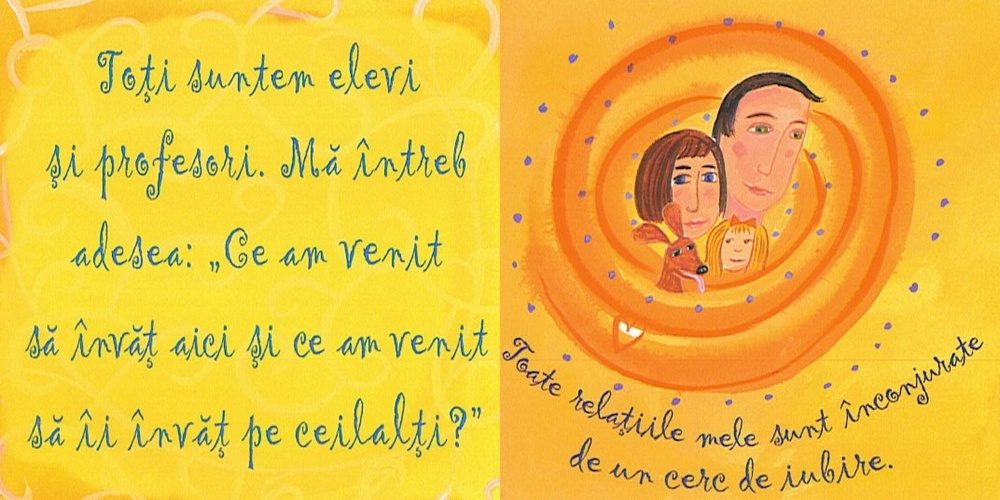 Toți suntem elevi
și profesori. Mă întreb
adesea: „Ce am venit
să învăț aici și ce am venit
să îi învăț pe ceilalți?”
Toate relațiile mele sunt înconjurate
de un cerc de iubire.